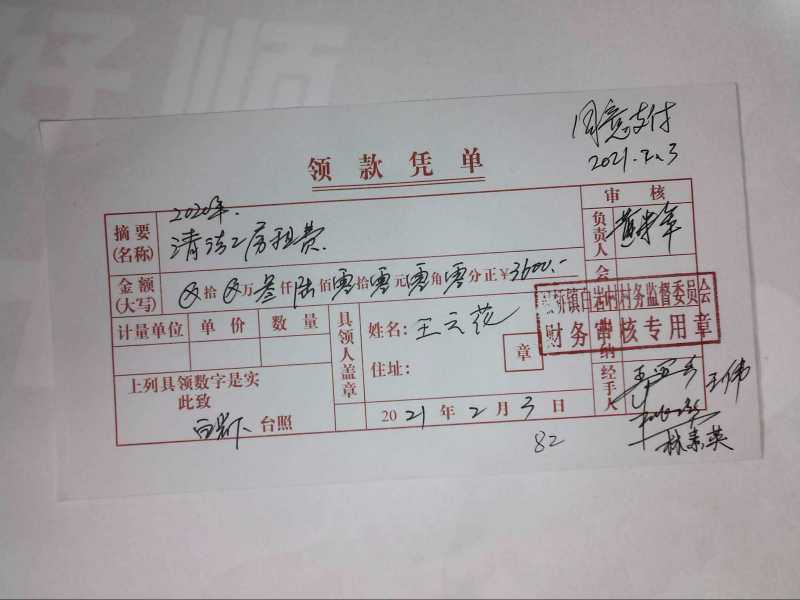 同意支付
2021.2.3
领款凭单
审核
摘要
(名称)
2020年.
清洁工房租费
负责人
金额
(大写)
⊗拾⊗万叁仟陆佰零拾零元零角零分正¥3600.-
会
计量单位 单价 数量
具领人盖章
姓名：王云花
住址：
章
镇白岩村村务监督委员会
财务审核专用章
纳
经手人
上列具领数字是实
此致
台照
2021年2月3日
王伟
林素英
82